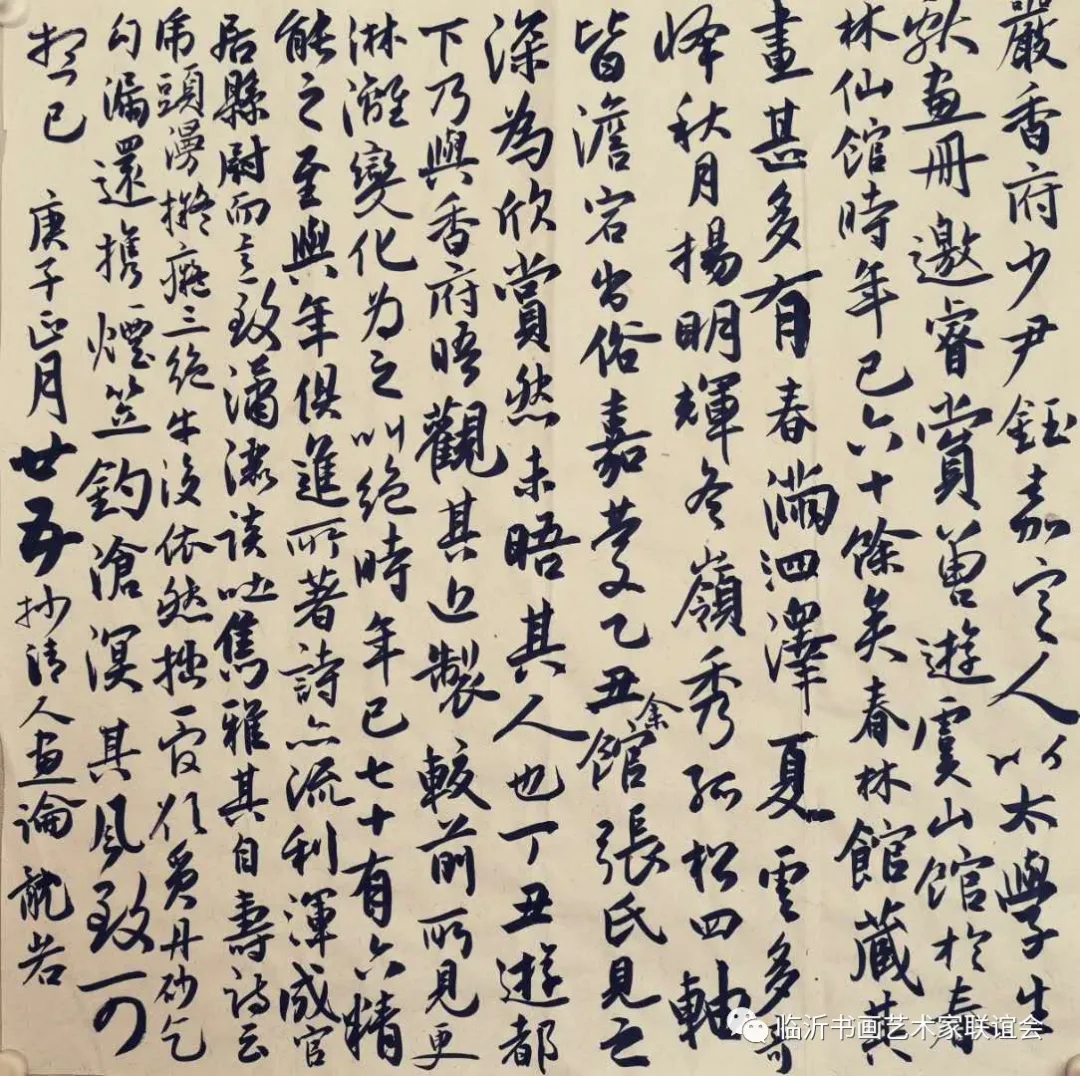 嚴香府少尹鈺嘉定人以太學生
獻畫冊邀睿賞曾遊虞山館於春
林仙館時年已六十餘矣春林館藏其
畫甚多有春滿四澤夏雲多奇
峰秋月揚明輝冬嶺秀孤松四軸
皆澹宕出俗嘉慶乙丑余館張氏見之
深為欣賞然未晤其人也丁丑遊都
下乃與香府晤觀其近製較前所見更
淋漓變化為之叫絕時年已七十有六精
能之至與年俱進所著詩亦流利渾成官
居縣尉而言致瀟灑談吐雋雅其自壽詩云
虎頭漫擬癡三絕牛後依然拙一官欲覓丹砂乞
勾漏還攜煙笠釣滄溟其風致可
想已 庚子正月廿五抄清人畫論
临沂书画艺术家联谊会